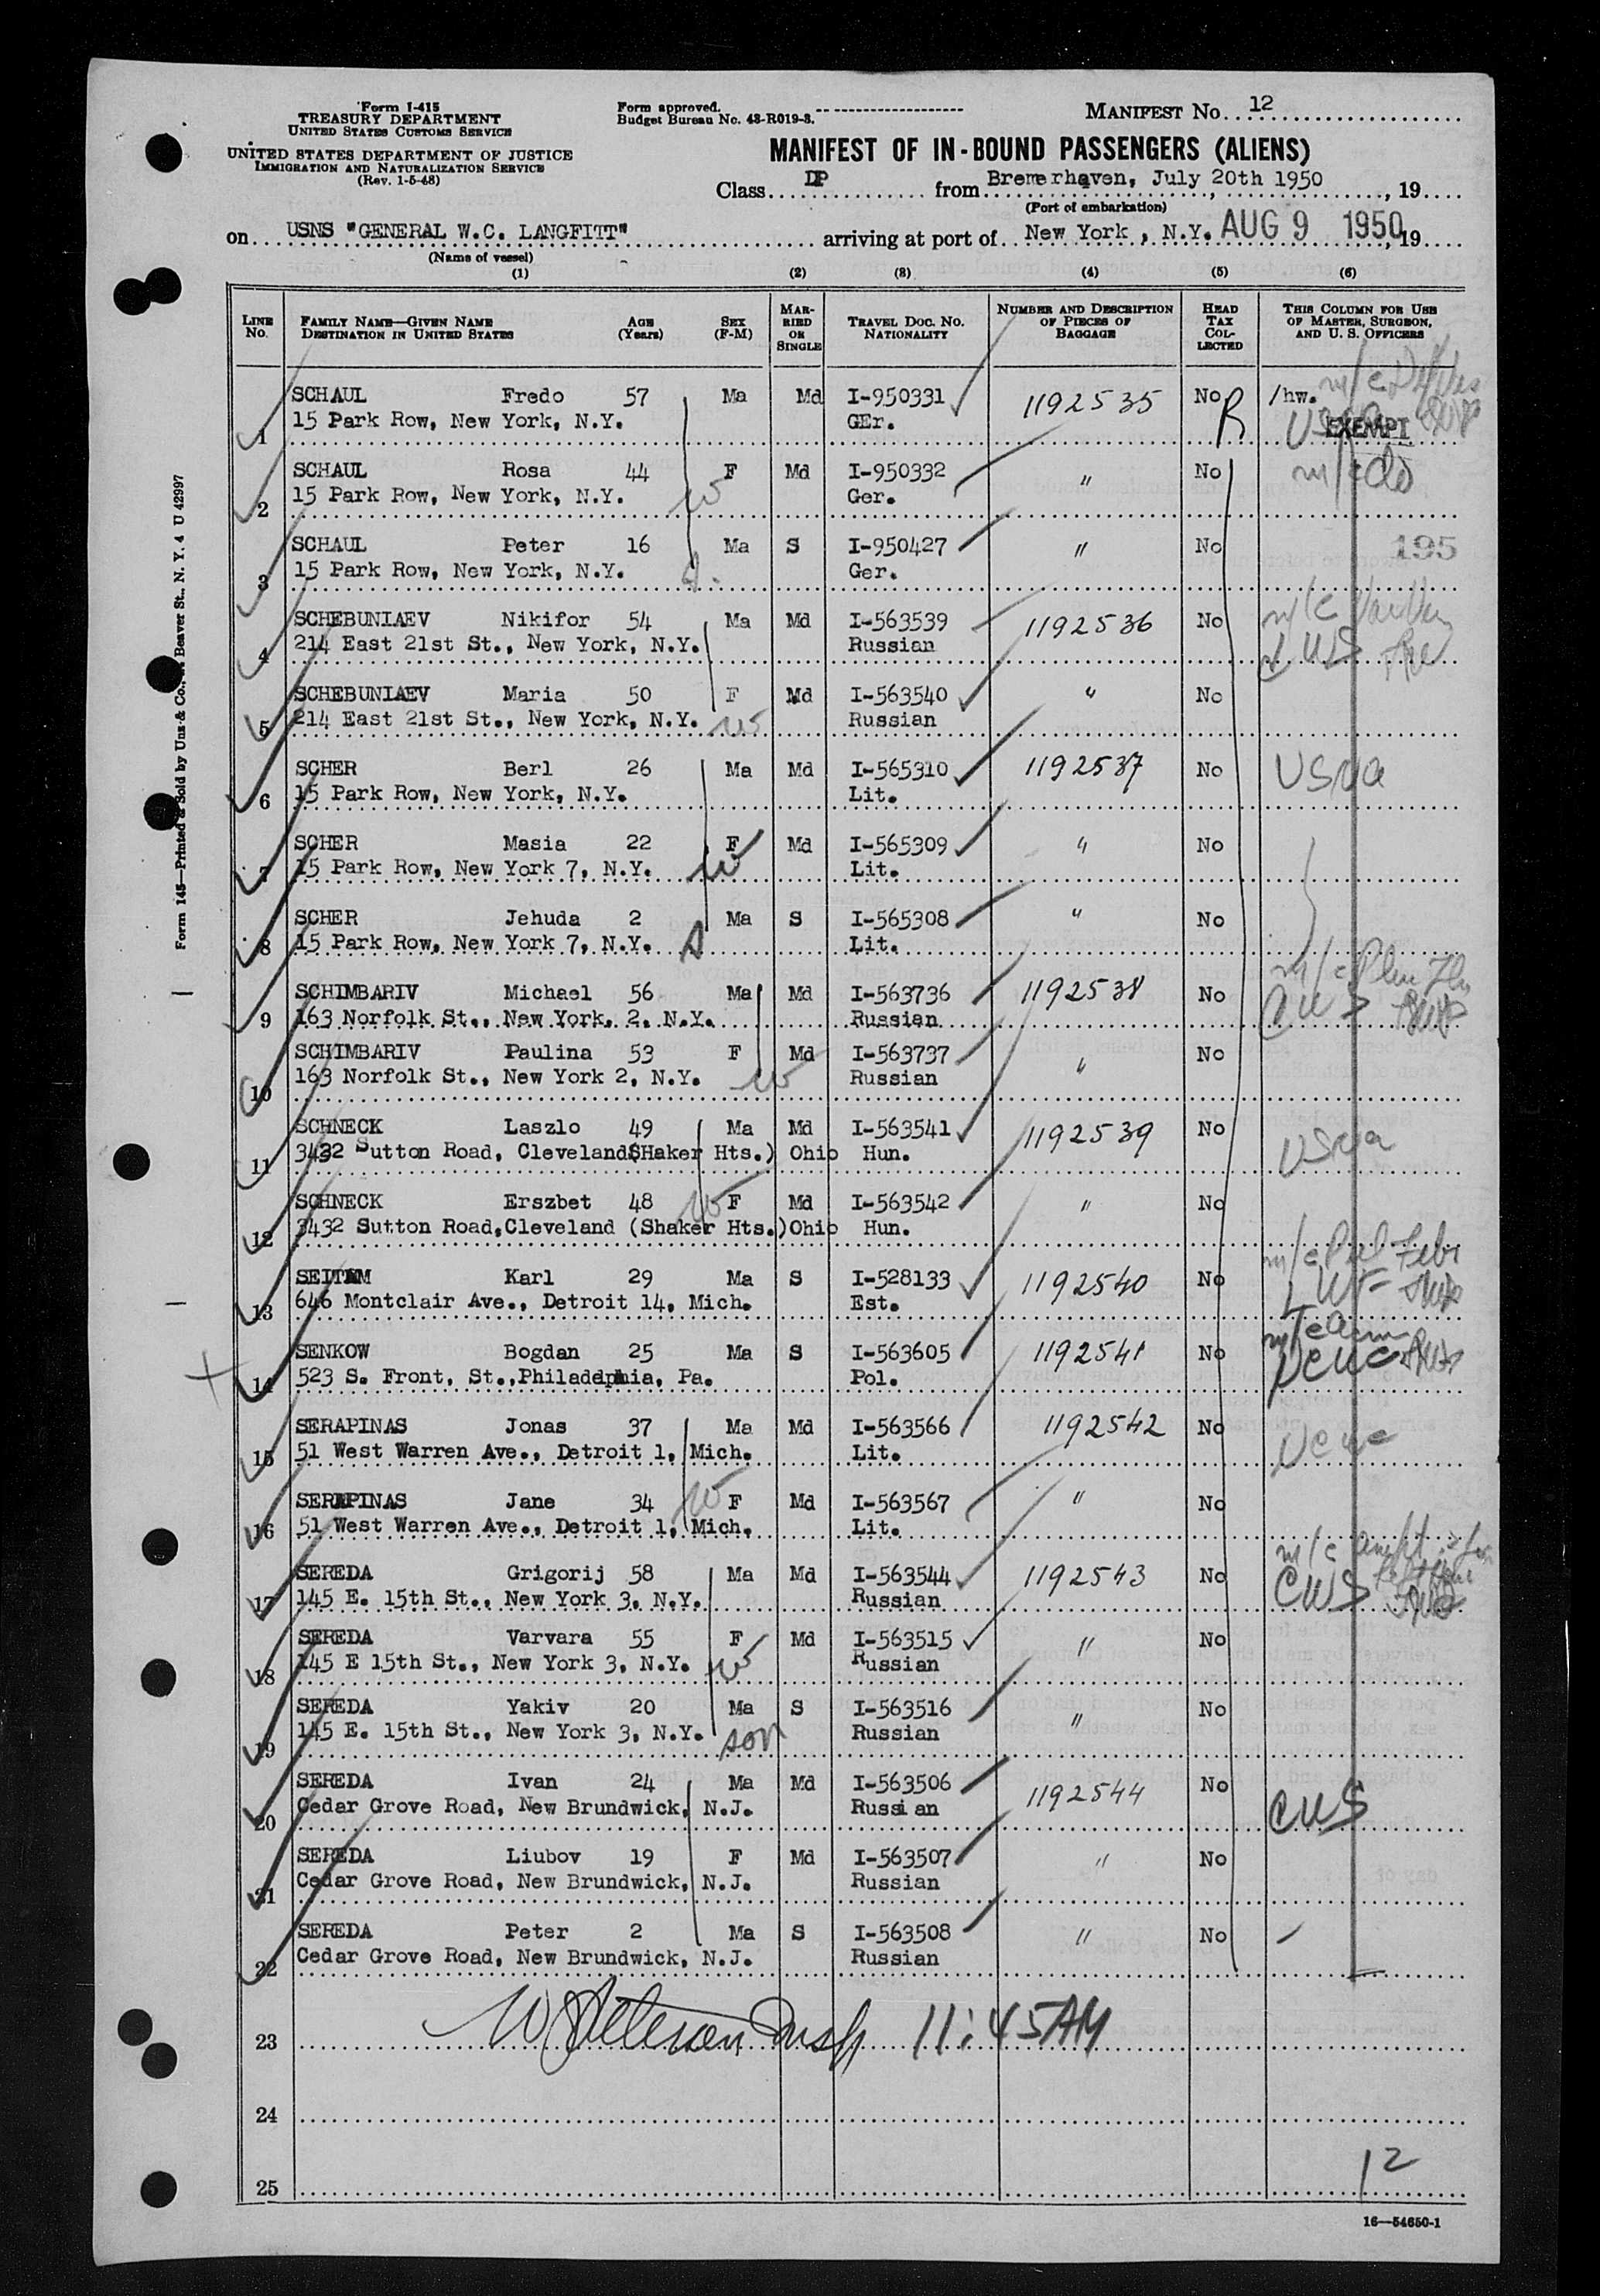 Form I-415
TREASURY DEPARTMENT
UNITED STATES CUSTOMS SERVICE
UNITED STATES DEPARTMENT OF JUSTICE
IMMIGRATION AND NATURALIZATION SERVICE
(Rev. 1-5-48)
Form approved.
Budget Bureau No. 43-R019-3.
MANIFEST No. 12
MANIFEST OF IN-BOUND PASSENGERS (ALIENS)
Class DP from Bremerhaven, July 20th 1950, 19
(Port of embarkation)
on USNS "GENERAL W.C. LANGFITT" arriving at port of New York, N.Y. AUG 9 1950, 19
(Name of vessel)
(1) (2) (3) (4) (5) (6)
LINE No. FAMILY NAME—GIVEN NAME DESTINATION IN UNITED STATES AGE (Years) SEX (F-M) MARRIED OR SINGLE TRAVEL DOC. NO. NATIONALITY NUMBER AND DESCRIPTION OF PIECES OF BAGGAGE HEAD TAX COLLECTED THIS COLUMN FOR USE OF MASTER, SURGEON, AND U. S. OFFICERS
SCHAUL Fredo 57 Ma Md I-950331 1192535 No R /hw.
1 15 Park Row, New York, N.Y. GEr. EXEMPT
SCHAUL Rosa 44 F Md I-950332 " No m/c do
2 15 Park Row, New York, N.Y. w Ger.
SCHAUL Peter 16 Ma S I-950427 " No 195
3 15 Park Row, New York, N.Y. s. Ger.
SCHEBUNIAEV Nikifor 54 Ma Md I-563539 1192536 No m/c
4 214 East 21st St., New York, N.Y. Russian CWS
SCHEBUNIAEV Maria 50 F Md I-563540 " No
5 214 East 21st St., New York, N.Y. w Russian
SCHER Berl 26 Ma Md I-565310 1192537 No USNA
6 15 Park Row, New York, N.Y. Lit.
SCHER Masia 22 F Md I-565309 " No
7 15 Park Row, New York 7, N.Y. w Lit.
SCHER Jehuda 2 Ma S I-565308 " No
8 15 Park Row, New York 7, N.Y. s Lit.
SCHIMBARIV Michael 56 Ma Md I-563736 1192538 No m/c
9 163 Norfolk St., New York, 2, N.Y. Russian CWS
SCHIMBARIV Paulina 53 F Md I-563737 " No
10 163 Norfolk St., New York 2, N.Y. w Russian
SCHNECK Laszlo 49 Ma Md I-563541 1192539 No USNA
11 3432 Sutton Road, Cleveland(SHaker Hts.) Ohio Hun.
SCHNECK Erszbet 48 w F Md I-563542 " No
12 3432 Sutton Road,Cleveland (Shaker Hts.)Ohio Hun.
SEITAM Karl 29 Ma S I-528133 1192540 No m/c
13 646 Montclair Ave., Detroit 14, Mich. Est. LWF
SENKOW Bogdan 25 Ma S I-563605 1192541 No m/c
14 523 S. Front, St.,Philadelphia, Pa. Pol. NCWC
SERAPINAS Jonas 37 Ma Md I-563566 1192542 No
15 51 West Warren Ave., Detroit 1, Mich. Lit. NCWC
SERAPINAS Jane 34 w F Md I-563567 " No
16 51 West Warren Ave., Detroit 1, Mich. Lit.
SEREDA Grigorij 58 Ma Md I-563544 1192543 No m/c
17 145 E. 15th St., New York 3, N.Y. Russian CWS
SEREDA Varvara 55 F Md I-563515 " No
18 145 E 15th St., New York 3, N.Y. w Russian
SEREDA Yakiv 20 Ma S I-563516 " No
19 145 E. 15th St., New York 3, N.Y. son Russian
SEREDA Ivan 24 Ma Md I-563506 1192544 No CWS
20 Cedar Grove Road, New Brundwick, N.J. Russian
SEREDA Liubov 19 F Md I-563507 " No
21 Cedar Grove Road, New Brundwick, N.J. Russian
SEREDA Peter 2 Ma S I-563508 " No
22 Cedar Grove Road, New Brundwick, N.J. Russian
23 11:45AM
24
25
12
16—54650-1
Form 145—Printed & Sold by Unz & Co., Beaver St., N. Y. 4 U 42997